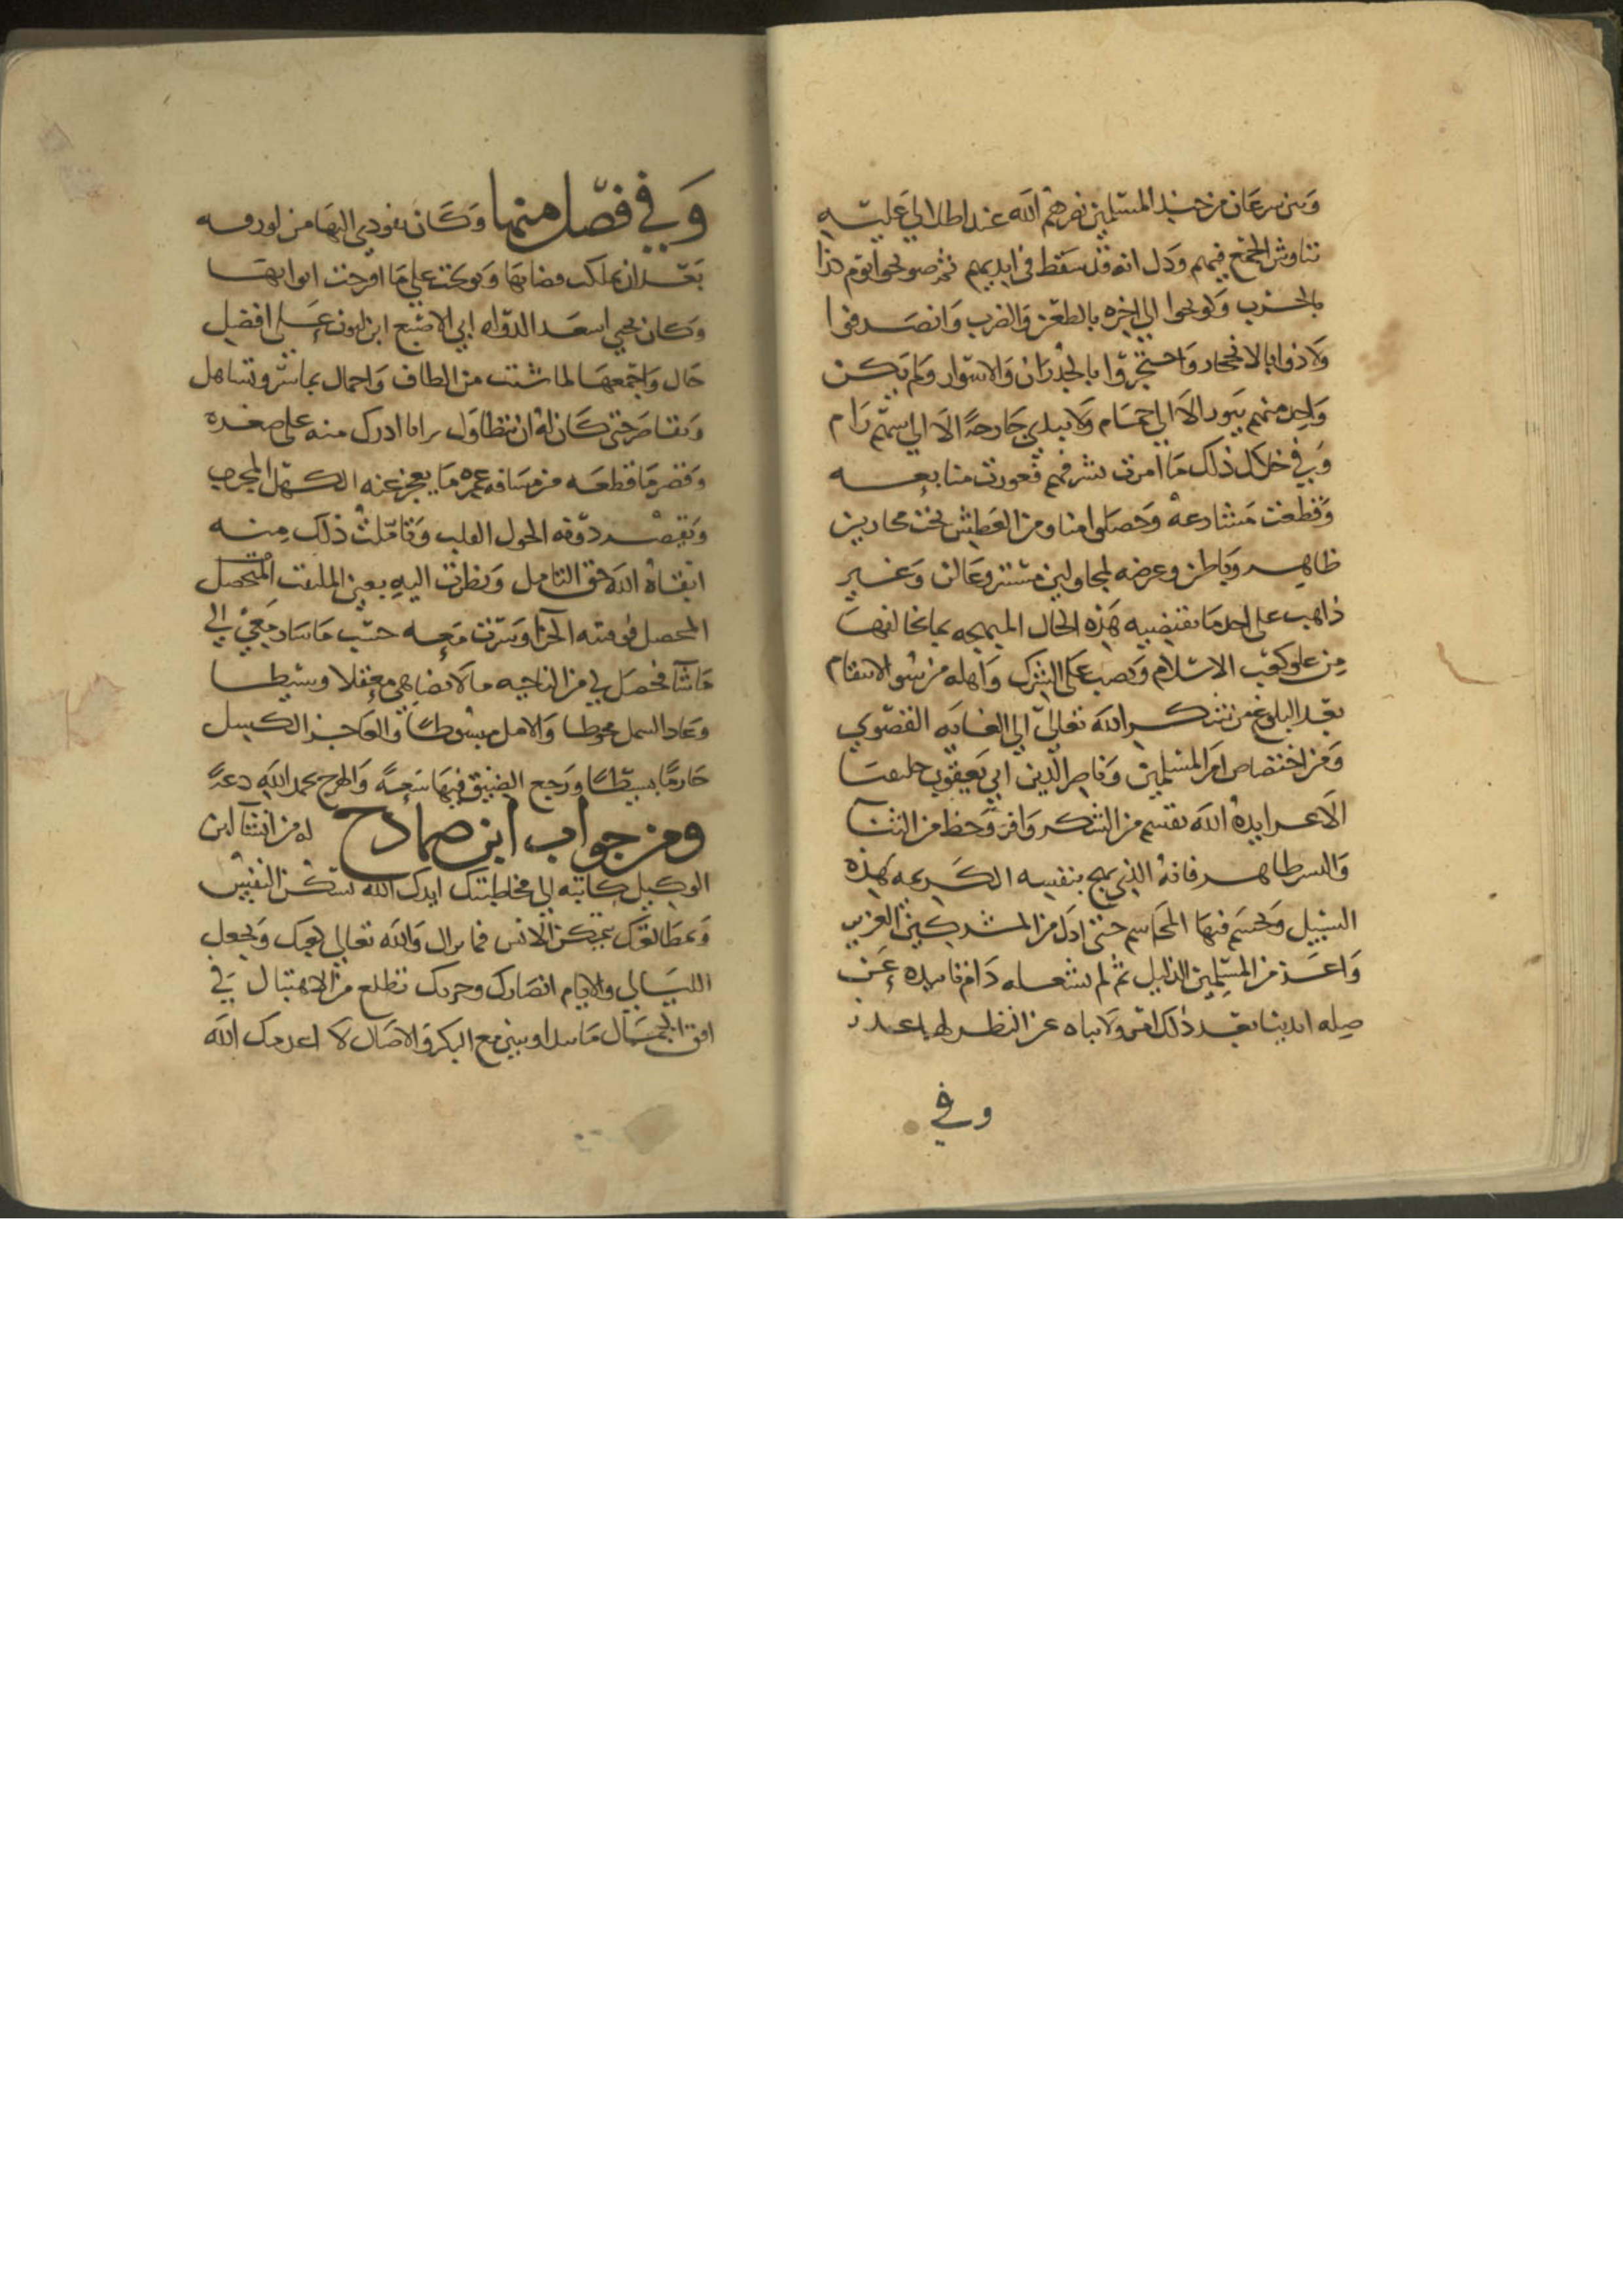 ومن سرعان من جند المسلمين نصرهم الله عند اطلالي عليه
تناوش الجمع فيهم ودل انه قد سقط في ايديهم ثم صوبحوا يوم كذا
بالحرب وكوبحوا الي اخره بالطعن والضرب وانصرفوا
ولاذوا بالانجحار واحتجزوا بالجدران والاسوار ولم يكن
واحد منهم يبرد الا الي حمام ولا يبدي جارحة الا الي سهم رام
وفي خلال ذلك ما امرت بشربهم فعورت منابعه
وقطعت مشارعه وحصلوا منا ومن العطش تحت محاربين
ظاهر وباطن وعرضه لمجاولين مستتر وعالن وغير
ذاهب على احد ما تقتضيه هذه الحال المبهجه بما تخالفها
من علو كعب الاسلام ونصب على الشرك واهله من سو الانتقام
بعد البلوغ من شكر الله تعالى الي الغايه القصوي
ومن اختصاص امر المسلمين وناصر الدين ابي يعقوب
الاعز ايده الله بقسم من الشكر وافر وحظ من الثنا
والسر ظاهر فانه الذي نهج بنفسه الكريمه هذه
السبيل وتجشم فيها المجاشم حتى اذل من المشركين العزيز
واعز من المسلمين الذليل ثم لم دام تاييده عن
صله ايدينا بعد ذلك ولا عن النظر لها
وفي
وفي فصل منها وكان نفوذي اليها من لورقه
بعد ان ملكت قصابها وبوكت علي ما افرجت ابوابها
وكان يحيي اسعد الدوله ابي الاصبع ابن لبون على افضل
حال واجمعها لما شئت من الطاف واجمال بما شر وتساهل
وتقاصر حتى كان له ان يتطاول برا بما ادرك منه على صغره
وقصر ما قطعه من مسافه عمره ما يعجز عنه الكهل المجرب
ويقصر دونه الحول القلب وتاملت ذلك منه
ابقاه الله حق التامل ونظرت اليه بعين الملتفت المتحصل
المحصل وسرت معه حسب ما سار معي الي
ما شا فحصل لي من الناحيه ما لا يضاهي معقلا وسيطا
وعاد الشمل محوطا والامل مبسوطا والعاجز الكسل
حازما بسيطا ورجع الضيق فيها سعة والهرج بحمد الله دعة
ومن جواب ابن صمادح له من انشا ابن
الوكيل كاتبه الي مخاطبتك ايدك الله تسكن النفس
وبمطالعتك يتمكن الانس فما يزال والله تعالى يعينك ويجعل
الليالي والايام انصارك وحزبك تطلع من الاهتبال في
افق الجمال ما بين مع البكر والاصال لا اعدمك الله